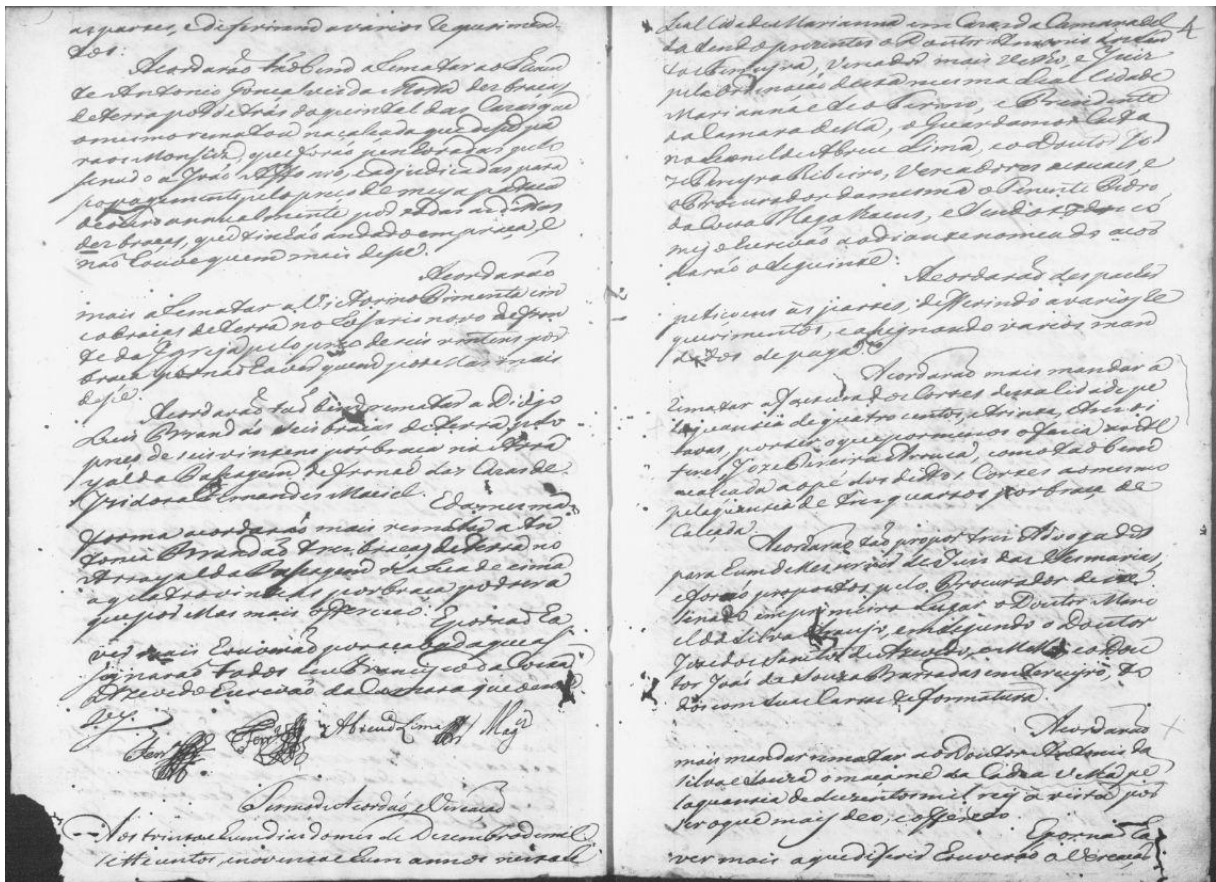 as partes, e diferirão a varios requerimen
tos.
Acordarão tãobem a Rematar ao Tenen
te Antonio Gonçalves da Motta dez braças
de terra por detrás do quintal das Cazas que
o mesmo rematou na calçada que desse pa
ra o Monsús, que forão penhoradas pelo
senado a João Affonço, e adjudicadas para
pagamento pelo preço de meya pataca
de ouro annualmente por todas as ditas
dez braças, que tinhão andado em praça, e
não houve quem mais desse.
Acordarão
mais a Rematar a Victorino Pimenta cin
co braças de terra no Rosario novo defron
te da Igreja pelo preço de seis vintens por
braça por não haver quem por ellas mais
desse.
Acordarão tão bem rematar a Diogo
Luis Brandão seis braças de terra pelo
preço de seis vintens por braça no Arra
yal da Passagem defronte das Cazas de
Izidora Fernandes Maciel.
E da mesma
forma acordarão mais rematar a An
tonia Brandão tres braças de terra no
Arrayal da Passagem na Rua de cima
a quatro vintens por braça por não ser a
que por ellas mais offereceo.
E por não ha
ver mais houverão por acabada que as
signarão todos Eu Francisco da Costa
Azevedo Escrivão da Camara que o es
crevy.
Abreu Lima
Mag.
Termo de Acordão, e Vereação
Aos trinta e hum dias do mes de Dezembro de mil
sette centos, e noventa e hum annos nesta
4
Leal Cidade Marianna em Cazas da Camara del
la sendo prezentes o Doutor
Ferreyra, Vereador mais velho, e Juiz
pela Ordenação desta mesma Leal Cidade
Marianna e seo Termo, e Prezidente
da Camara della, o Guarda mor Caeta
no Leonel de Abreu Lima, e o Doutor Jo
zé Pereyra Ribeiro, Vereadores actuais, e
o Procurador da mesma o Tenente Pedro
da Costa Magalhaens, e sendo co
migo Escrivão ao diante nomeado acor
darão o seguinte:
Acordarão despachar
petiçoens às partes, defferindo a varios Re
querimentos, e assignando varios man
dados de paga.
Acordarão mais mandar a
Rematar a factura dos Corres desta Cidade pe
la quantia de quatro centos, e trinta, e tres oi
tavas, por ser o que por menos o fazia ao Al
feres Joze Pereira Arouca, como tão bem
a calçada ao pe dos ditos Corres ao mesmo
pela quantia de tres quartos por braça de
Calçada.
Acordarão tão propor tres Advogados
para hum delles servir de Juis das Sesmarias,
e forão propostos pelo Procurador deste
senado em primeiro lugar o Doutor Mano
el da Silva, em segundo o Doutor
Joze dos Santos de Azevedo, e o Dou
tor João de Souza Barradas em terceyro, to
dos com suas Cartas de formatura.
Acordarão
mais mandar rematar ao Doutor Antonio da
Silva e Souza o maçame da Cadea velha pe
la quantia de duzentos mil reis à vista por
ser o que mais deo, e offereceo.
E por não ha
ver mais a que diferir houverão a Vereação